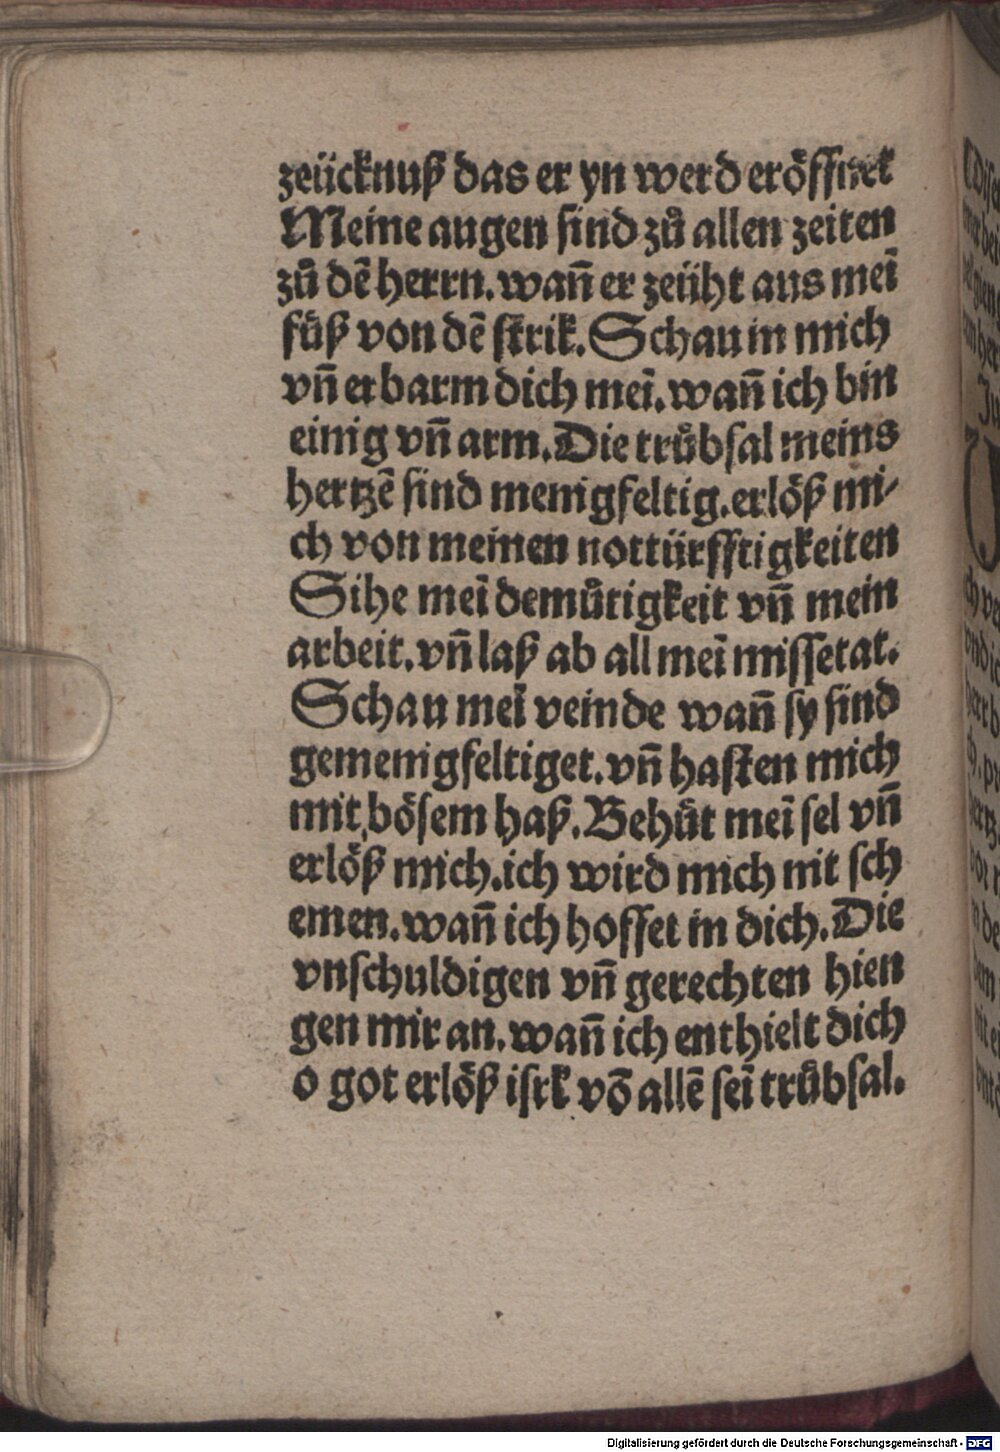 zeücknuß das er yn werd eröffnet
Meine augen sind zů allen zeiten
zů dē herrn. wañ er zeüht aus meī
fůß von dē strik. Schau in mich
vñ erbarm dich meī. wañ ich bin
einig vñ arm. Die trůbsal meins
hertzē sind menigfeltig. erlöß mi-
ch von meinen nottürfftigkeiten
Sihe meī demůtigkeit vñ mein
arbeit. vñ laß ab all meī missetat.
Schau meī veinde wañ sy sind
gemenigfeltiget. vñ hasten mich
mit bösem haß. Behůt meī sel vñ
erlöß mich. ich wird mich nit sch
emen. wañ ich hoffet in dich. Die
vnschuldigen vñ gerechten hien
gen mir an. wañ ich enthielt dich
o got erlöß isrl vō allē seī trůbsal.
Digitalisierung gefördert durch die Deutsche Forschungsgemeinschaft - DFG